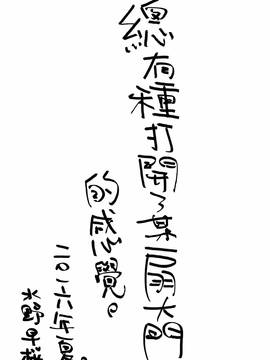 總有種打開了某扇大門
的感覺。
二〇一六年夏
水野早桜